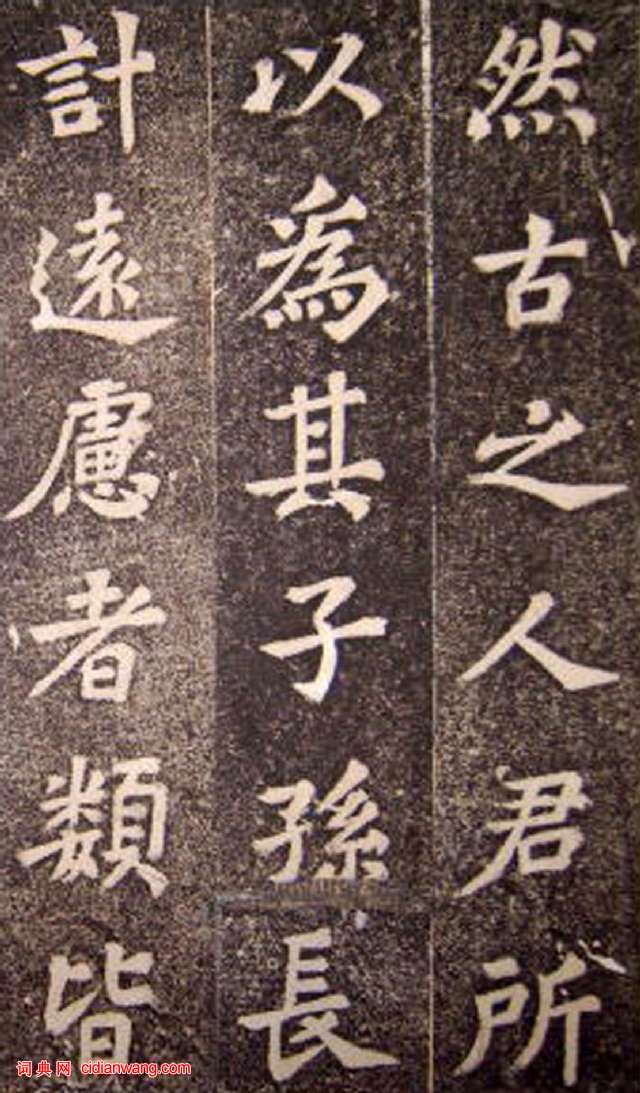 然古之人君所
以為其子孫長
計遠慮者類皆
词典网 cidianwang.com